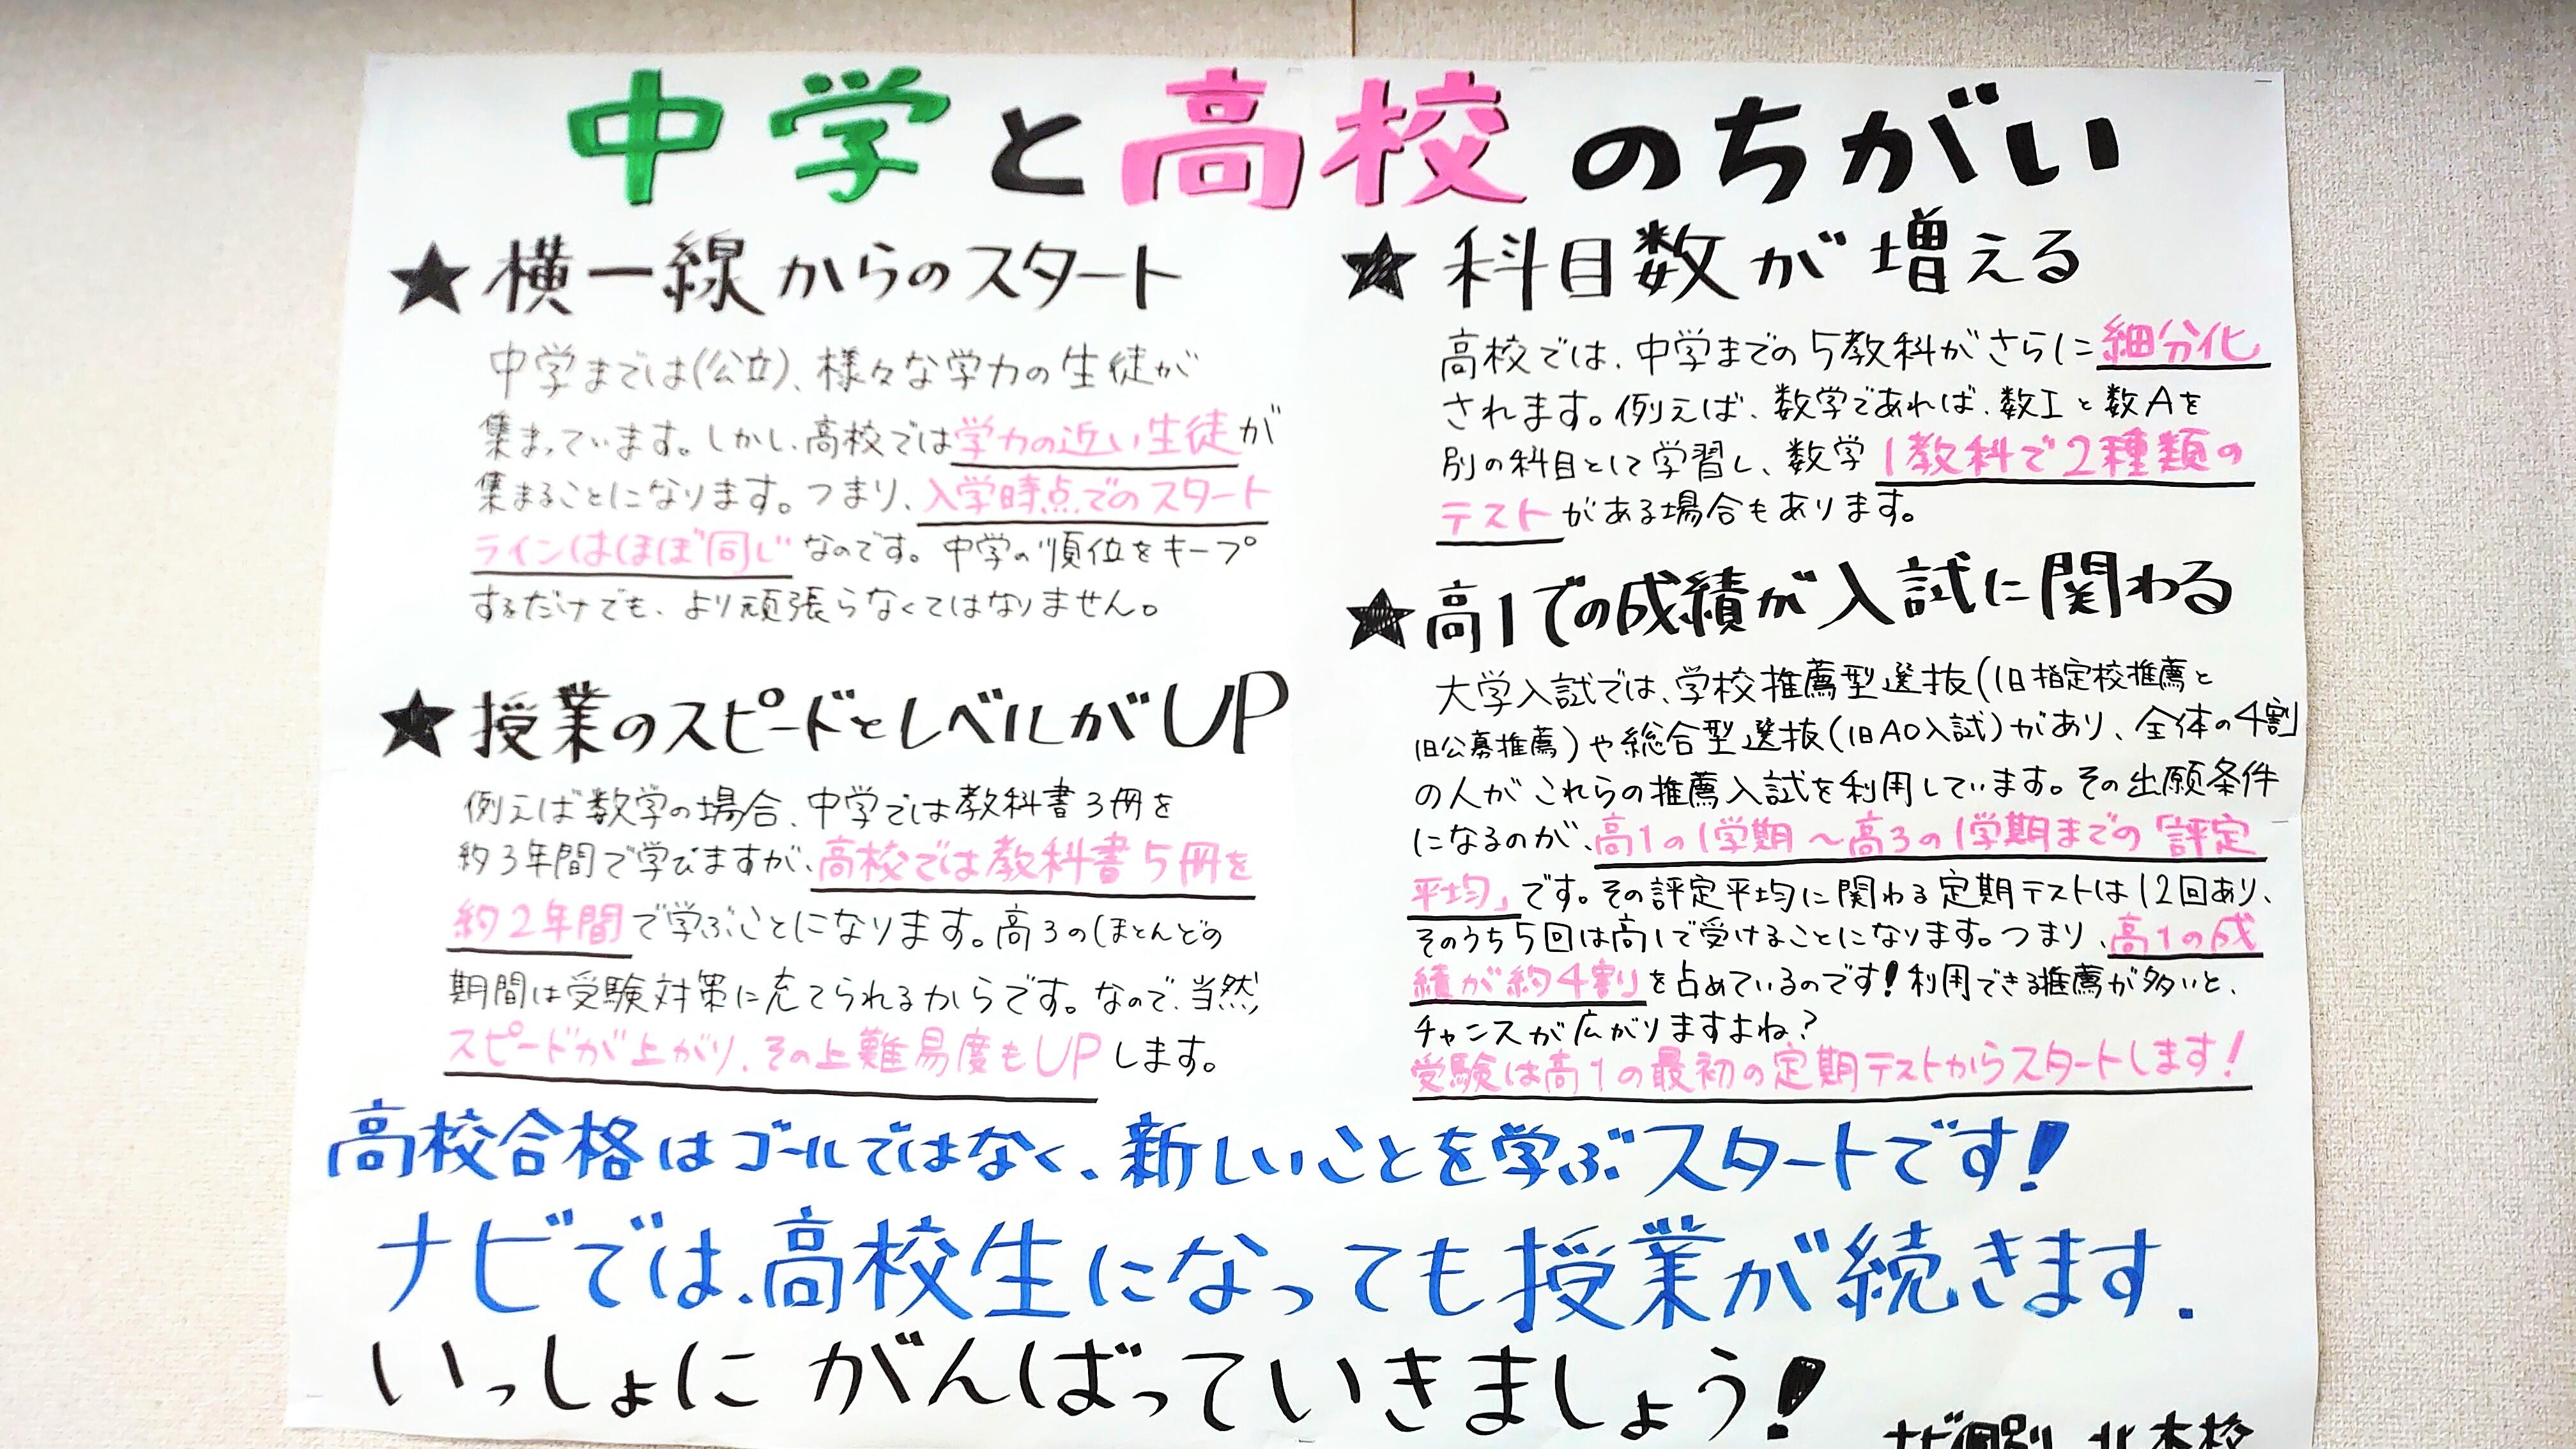 中学と高校のちがい
★横一線からのスタート
中学までは(公立)、様々な学力の生徒が
集まっています。しかし、高校では学力の近い生徒が
集まることになります。つまり、入学時点でのスタート
ラインはほぼ同じなのです。中学の順位をキープ
するだけでも、より頑張らなくてはなりません。
★授業のスピードとレベルがUP
例えば数学の場合、中学では教科書3冊を
約3年間で学びますが、高校では教科書5冊を
約2年間で学ぶことになります。高3のほとんどの
期間は受験対策に充てられるからです。なので、当然、
スピードが上がり、その上難易度もUPします。
★科目数が増える
高校では、中学までの5教科がさらに細分化
されます。例えば、数学であれば、数Iと数Aを
別の科目として学習し、数学1教科で2種類の
テストがある場合もあります。
★高1での成績が入試に関わる
大学入試では、学校推薦型選抜(旧指定校推薦と
旧公募推薦)や総合型選抜(旧AO入試)があり、全体の4割
の人がこれらの推薦入試を利用しています。その出願条件
になるのが、高1の1学期~高3の1学期までの「評定
平均」です。その評定平均に関わる定期テストは12回あり、
そのうち5回は高1で受けることになります。つまり、高1の成
績が約4割を占めているのです!利用できる推薦が多いと、
チャンスが広がりますよね?
受験は高1の最初の定期テストからスタートします!
高校合格はゴールではなく、新しいことを学ぶスタートです!
ナビでは、高校生になっても授業が続きます.
いっしょにがんばっていきましょう!
ナビ個別 北本校